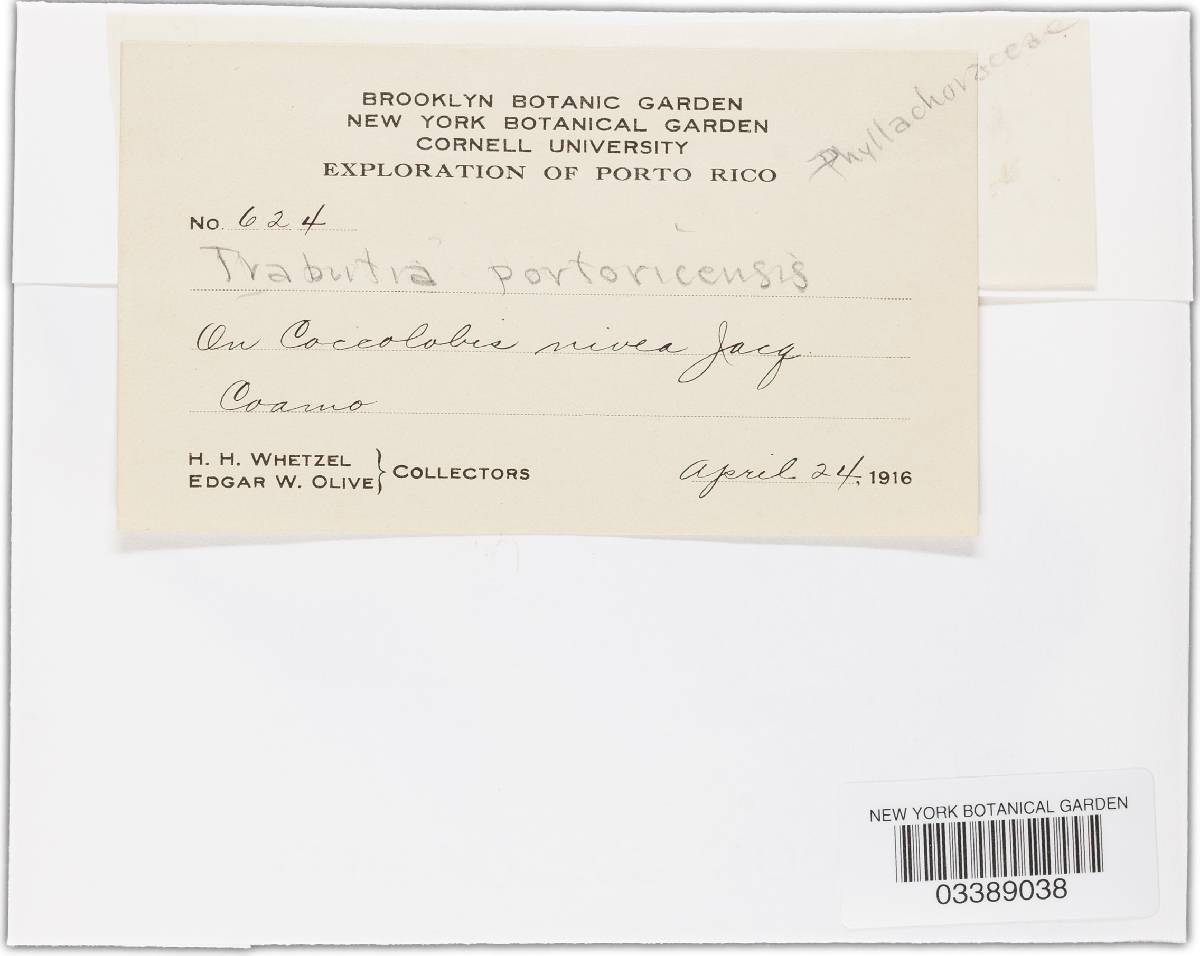 BROOKLYN BOTANIC GARDEN
NEW YORK BOTANICAL GARDEN
CORNELL UNIVERSITY
EXPLORATION OF PORTO RICO
Phyllachoraceae
No. 624
Trabutia portoricensis
On Coccolobis nivea Jacq.
Coamo
H. H. WHETZEL
EDGAR W. OLIVE } COLLECTORS
April 24, 1916
NEW YORK BOTANICAL GARDEN
03389038